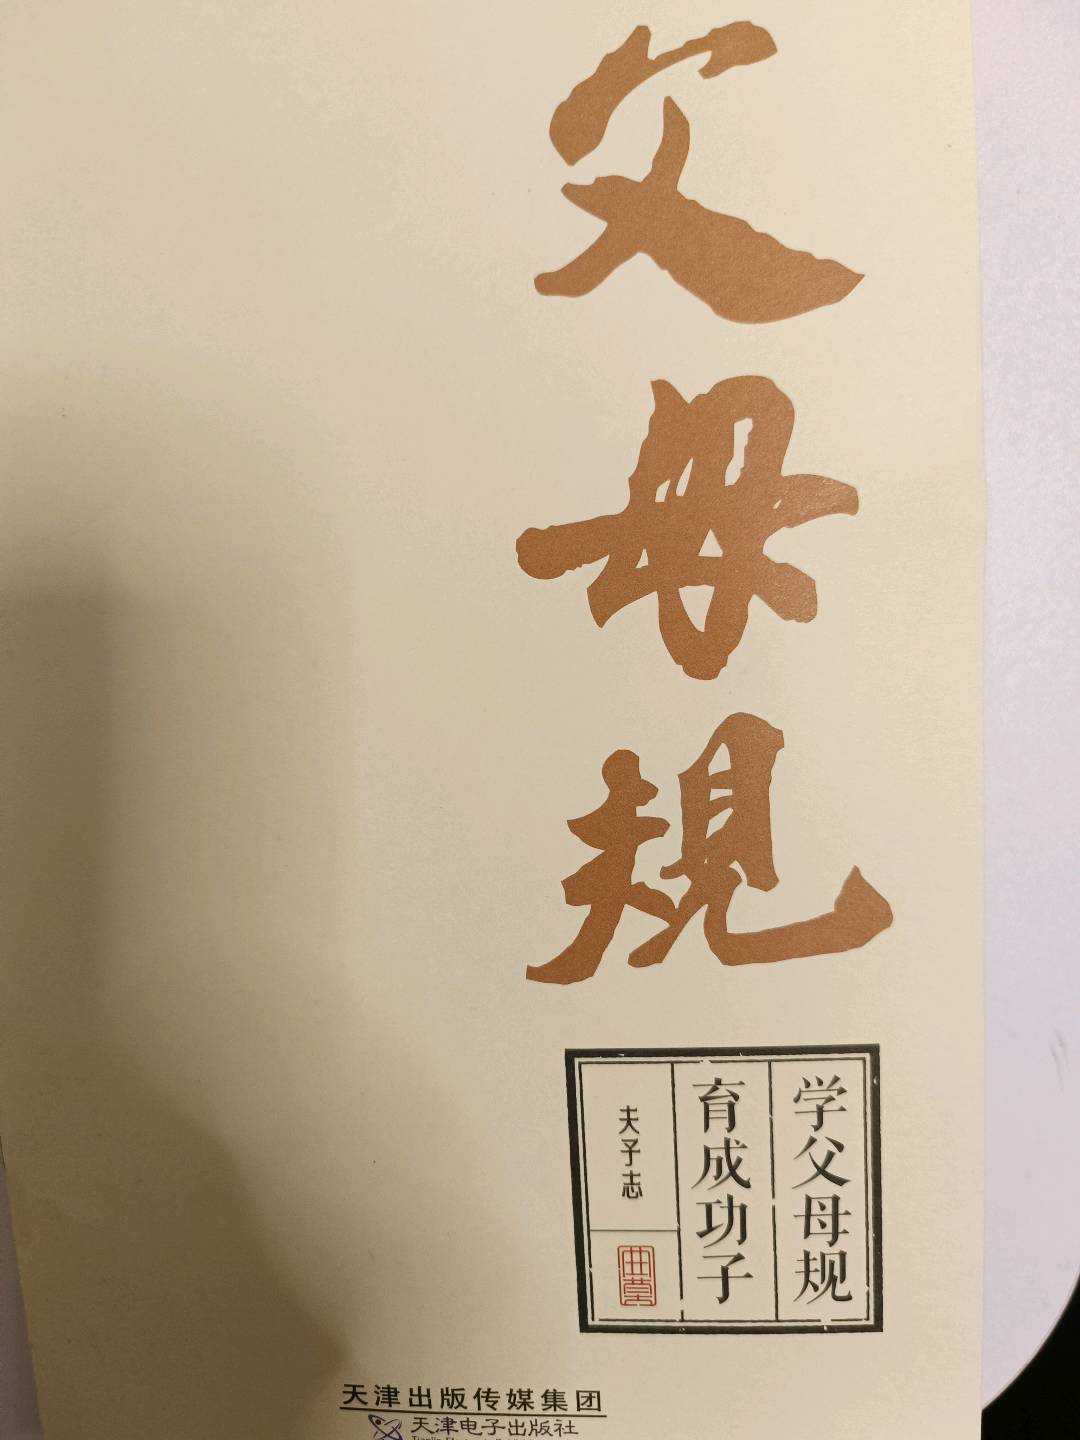 父母規
学父母规
育成功子
夫子志
天津出版传媒集团
天津电子出版社